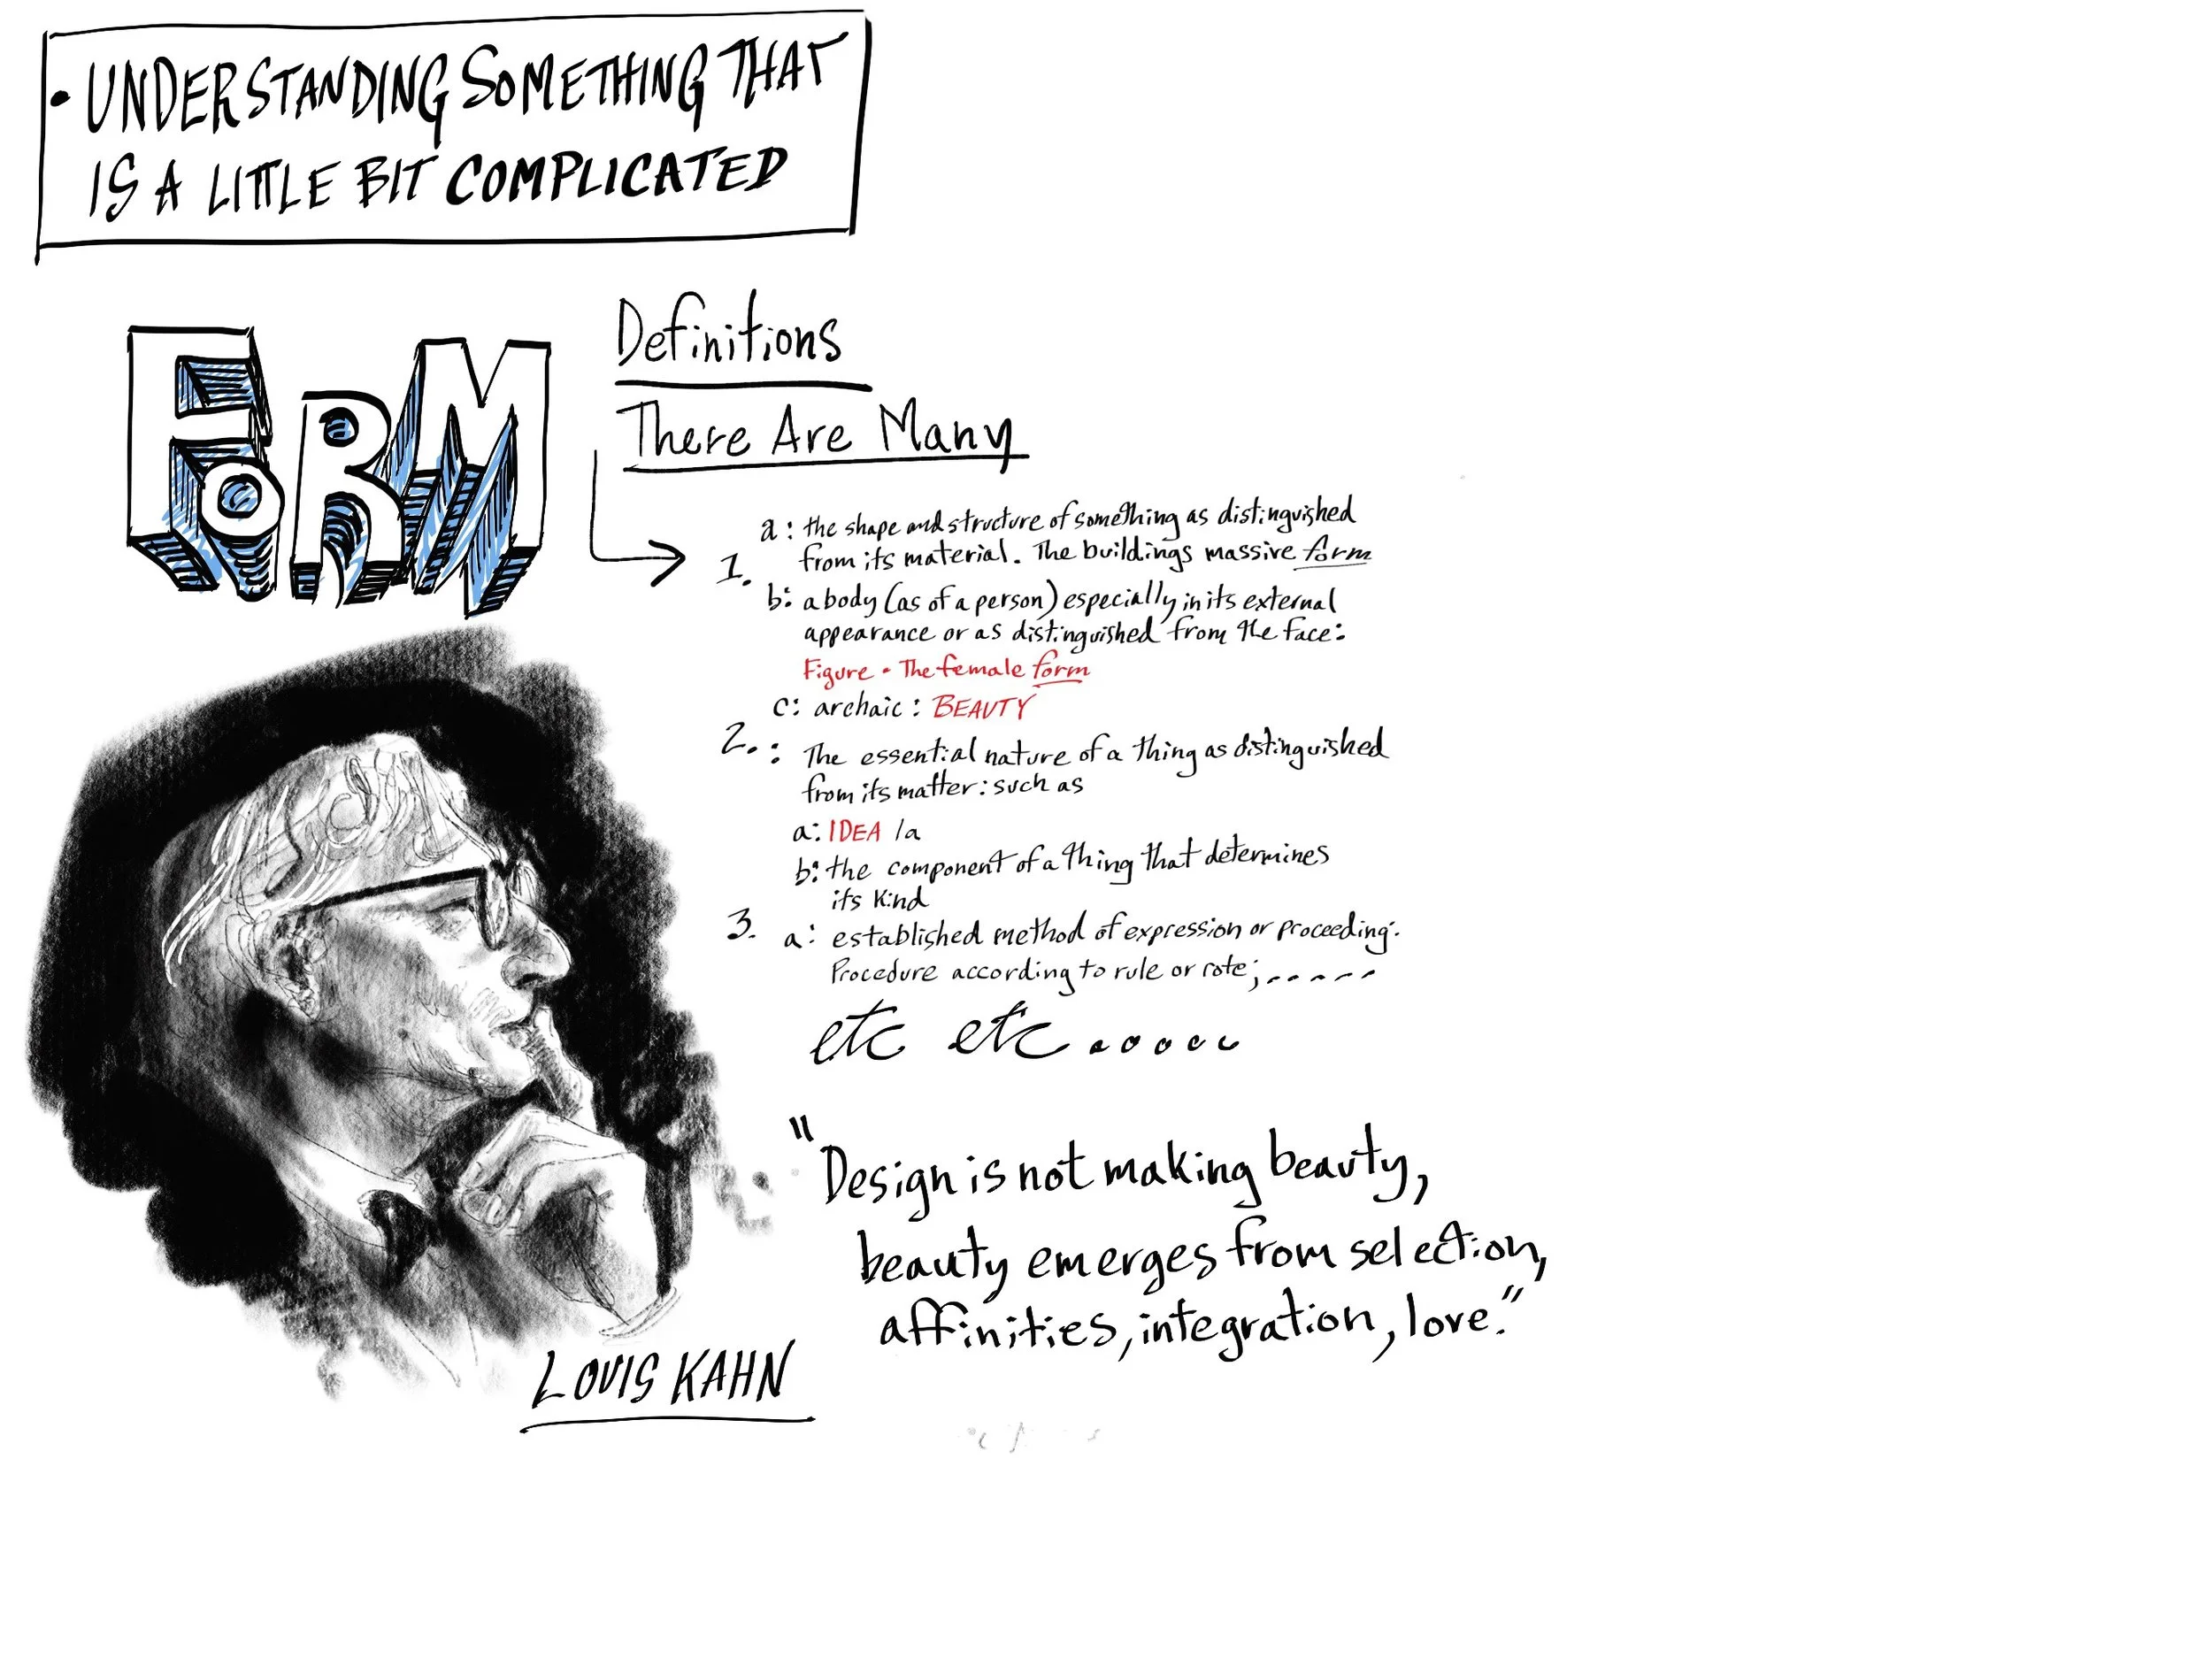 • UNDERSTANDING SOMETHING THAT
IS A LITTLE BIT COMPLICATED
FORM
Definitions
There Are Many
1.
a: the shape and structure of something as distinguished
from its material. The buildings massive form
b: a body (as of a person) especially in its external
appearance or as distinguished from the face:
Figure • The female form
c: archaic: BEAUTY
2. : The essential nature of a thing as distinguished
from its matter: such as
a: IDEA 1a
b: the component of a thing that determines
its kind
3. a: established method of expression or proceeding:
Procedure according to rule or rote; .....
etc etc.....
"Design is not making beauty,
beauty emerges from selection,
affinities, integration, love."
LOUIS KAHN